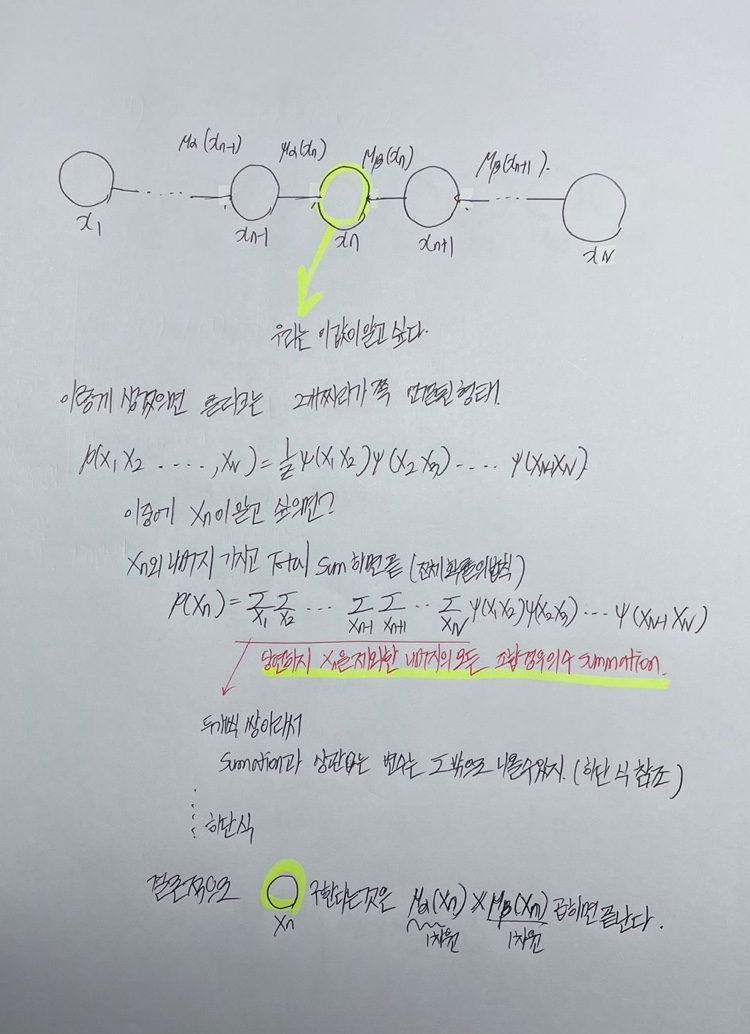 μα(xn-1) μα(xn) μβ(xn) μβ(xn+1).
x1 xn-1 xn xn+1 xN
우리는 이값이 알고 싶다.
이렇게 생겼으면 클리크는 2개짜리가 쭉 연결된 형태.
p(x1 x2 ....., xN) = 1/Z ψ(x1 x2) ψ(x2 x3) ..... ψ(xN-1 xN)
이중에 xn이 알고 싶으면?
xn외 나머지 가지고 Total sum 하면 끝 (전체 확률의 법칙)
p(xn) = Σx1 Σx2 ... Σxn-1 Σxn+1 .. ΣxN ψ(x1 x2) ψ(x2 x3) ... ψ(xN-1 xN)
당연하지 xn을 제외한 나머지의 모든 조합 경우의 수 summation.
두개씩 쌍이라서
summation과 상관없는 변수는 Σ 밖으로 나올수있지. (하단 식 참조)
하단식
결론적으로 xn 구한다는것은 μα(xn) × μβ(xn) 곱하면 끝난다.
1차원 1차원